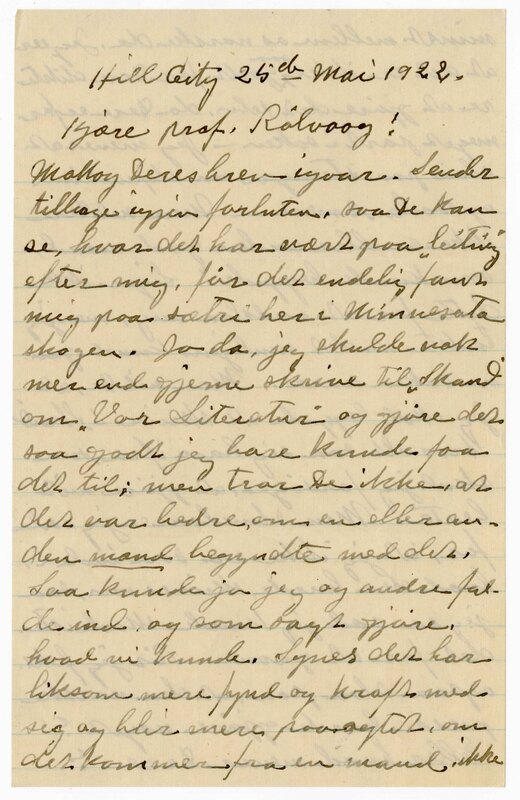 Hill City 25de Mai 1922.
Kjære prof. Rölvaag!
Mottog Deres brev igaar. Sender
tilbage igjen forluten, saa De kan
se, hvor det har vært paa „leiting"
efter mig, før det endelig fant
mig paa sætri her i Minnesota
skogen. Jo da, jeg skulde nok
mer end gjerne skrive til „Skand"
om „Vor Literatur" og gjöre det
saa godt jeg bare kunde faa
det til; men tror De ikke, at
det var bedre, om en eller an-
den mand begyndte med det.
Saa kunde jo jeg og andre fal-
de ind og som sagt gjöre,
hvad vi kunde. Synes det har
liksom mere fynd og kraft med
sig og blir mere paaagtet, om
det kommer fra en mand, ikke